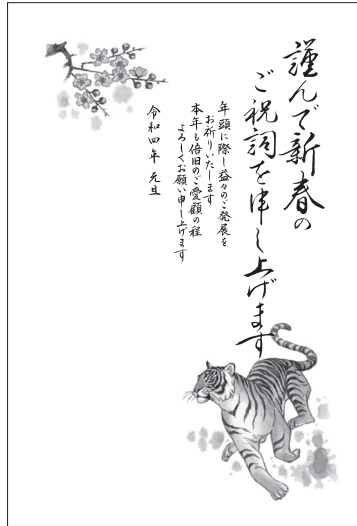 謹んで新春の
ご祝詞を申し上げます
年頭に際し益々のご発展を
お祈りいたします
本年も倍旧のご愛顧の程
よろしくお願い申し上げます
令和四年 元旦